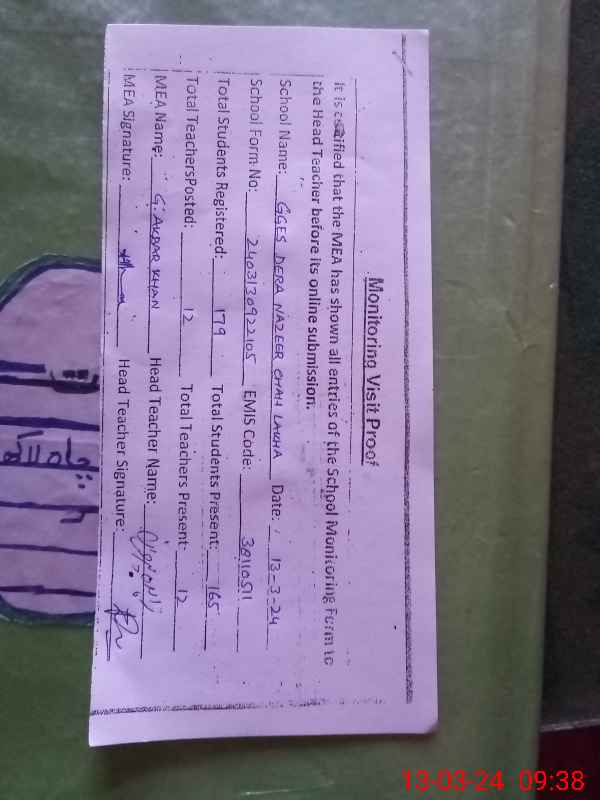 Monitoring Visit Proof
It is certified that the MEA has shown all entries of the School Monitoring Form to
the Head Teacher before its online submission.
School Name: GGES DERA NAZEER CHAH LAKHA Date: 13-3-24
School Form No: 2403130922105 EMIS Code: 38110511
Total Students Registered: 179 Total Students Present: 165
Total TeachersPosted: 12 Total Teachers Present: 12
MEA Name: G. AKBAR KHAN Head Teacher Name:
MEA Signature: Head Teacher Signature:
13-03-24 09:38